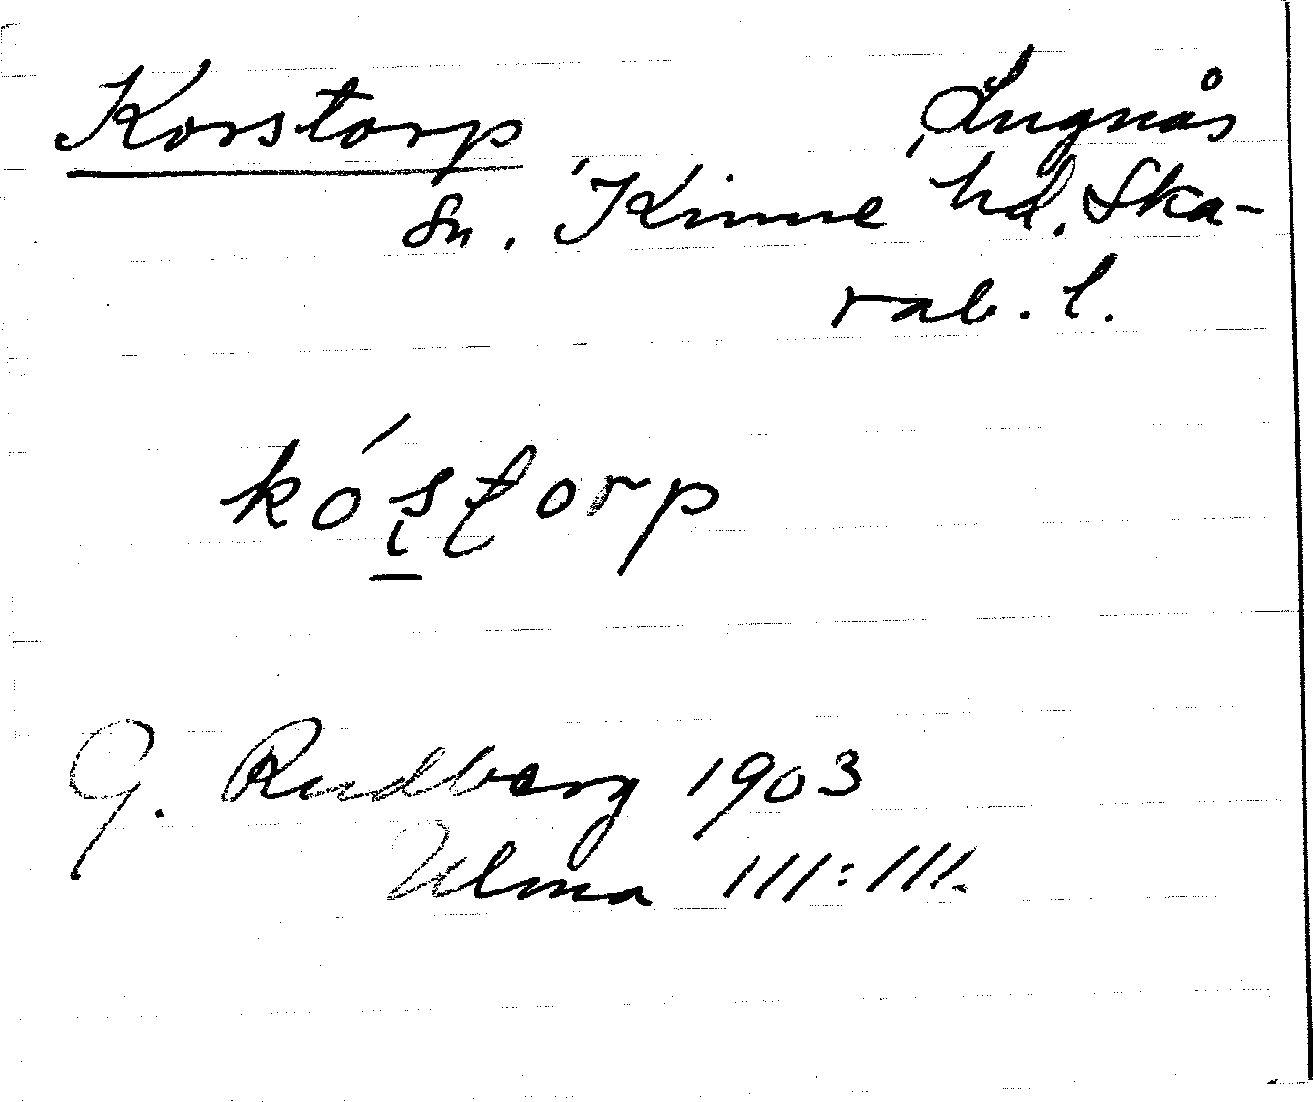 Korstorp Lugnås
sn. Kinne hd. Ska-
rab. l.
kós̱ʈorp
G. Rudberg 1903
Ulma III:III.